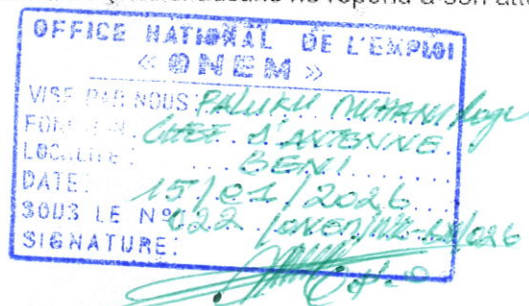 aucune ne répond à son
OFFICE NATIONAL DE L'EMPLOI
« ONEM »
VISE PAR NOUS: PALUKU
FONCTION: CHEF D'ANTENNE
LOCALITE: BENI
DATE: 15/01/2026
SOUS LE N° 022
SIGNATURE: